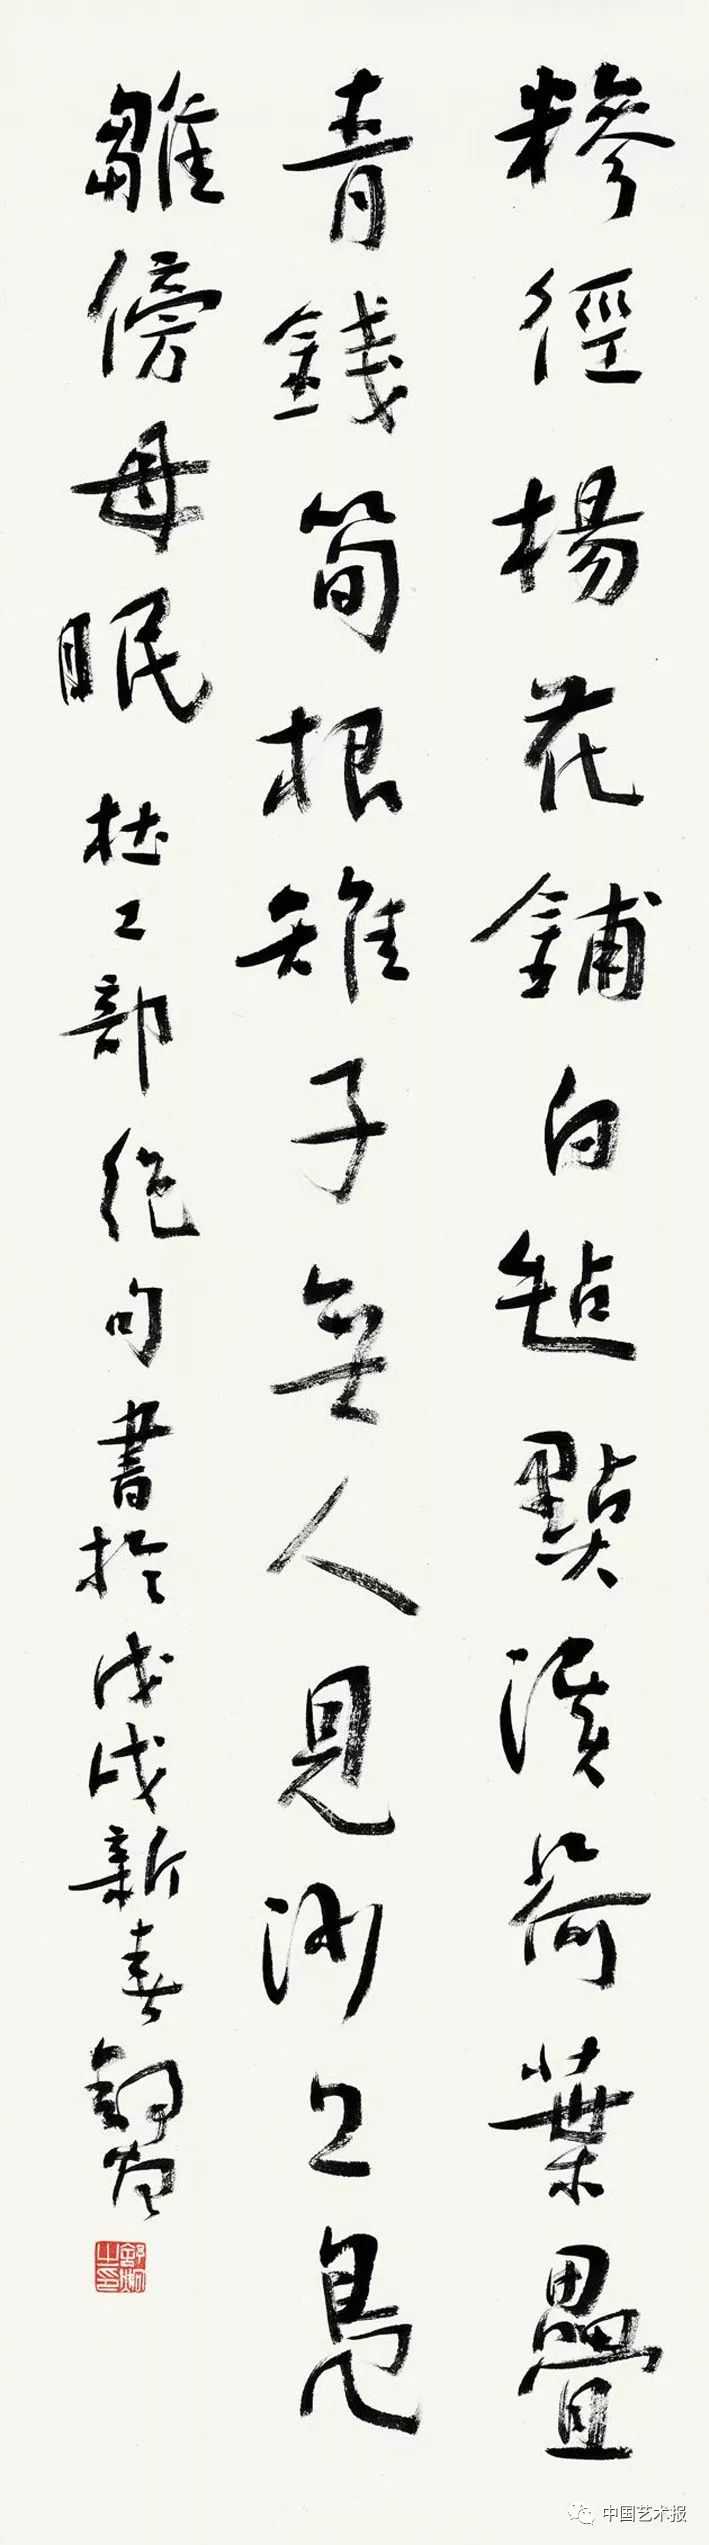 糝徑楊花鋪白毡點溪荷葉疊
青錢筍根雉子無人見沙上鳧
雛傍母眠 杜工部絕句書於戊戌新春
中国艺术报